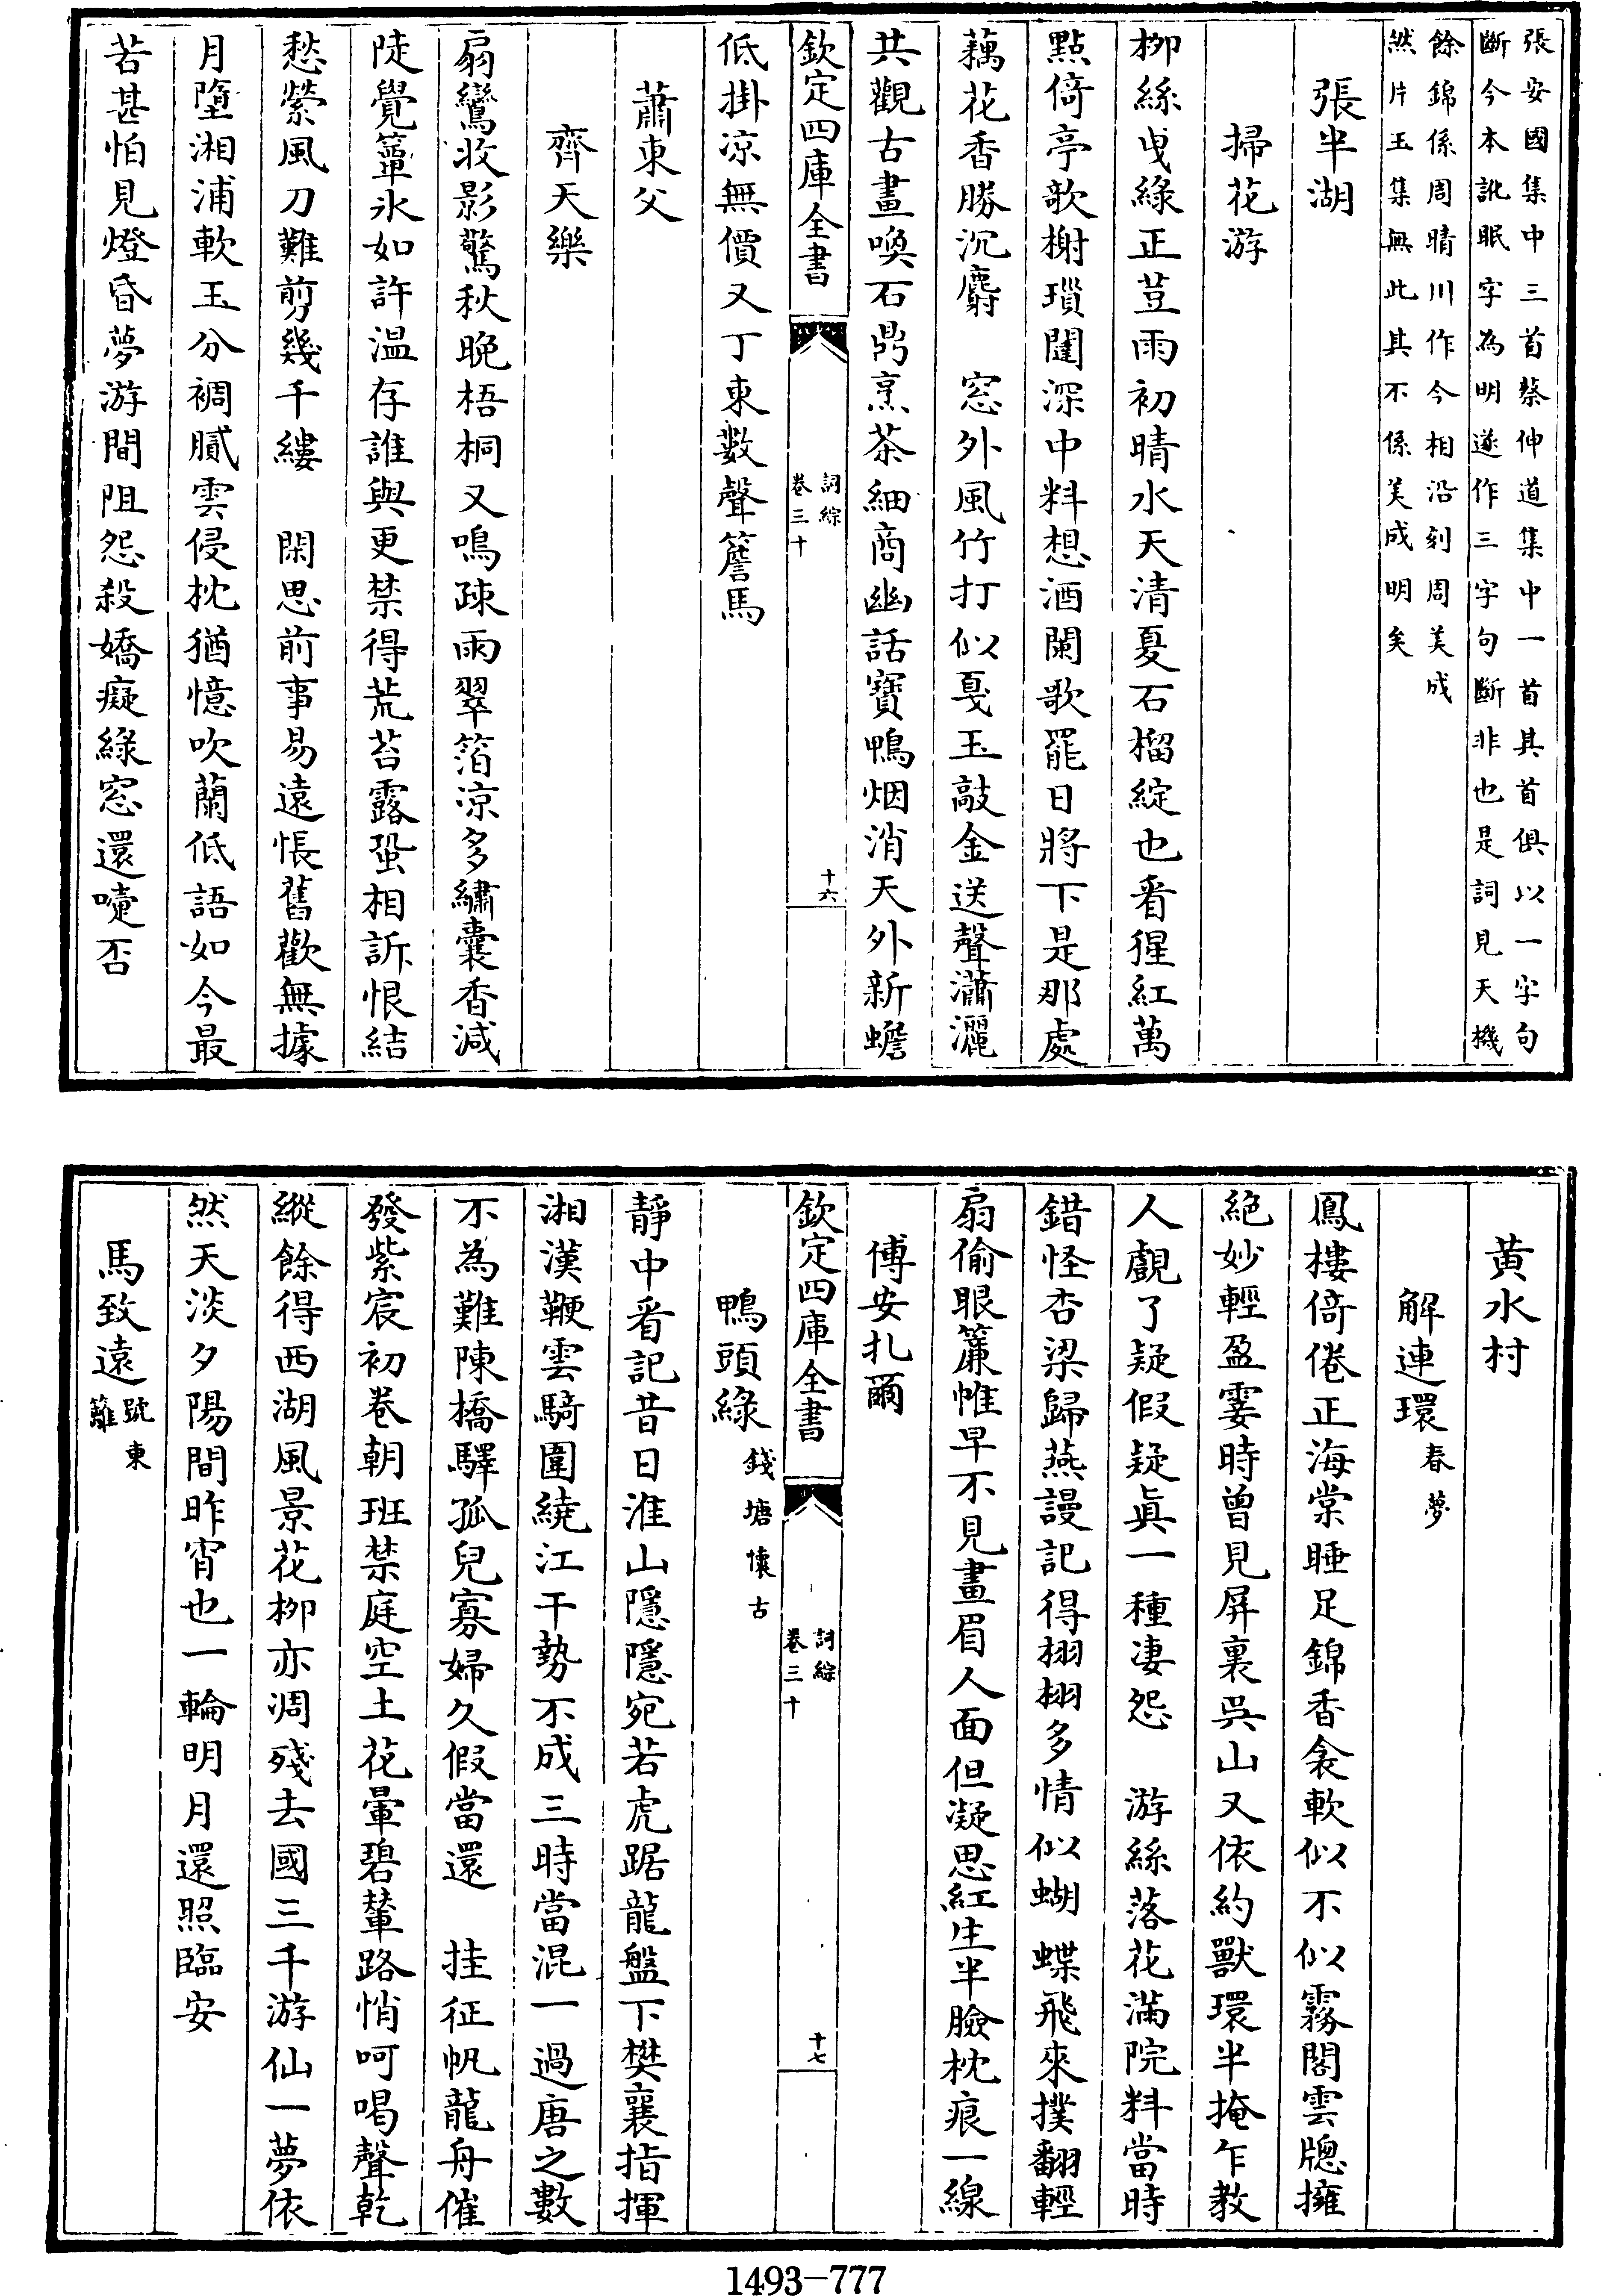 張安國集中三首蔡伸道集中一首其首俱以一字句
斷今本訛眠字為明遂作三字句斷非也是詞見天機
餘錦係周晴川作今相沿刻周美成
然片玉集無此其不係美成明矣
張半湖
掃花游
柳絲曵綠正荳雨初晴水天清夏石榴綻也看猩紅萬
點倚亭歌榭瑣闥深中料想酒闌歌罷日將下是那處
藕花香勝沉麝　窓外風竹打似戛玉敲金送聲瀟灑
共觀古畫喚石鼎烹茶細商幽話寶鴨烟消天外新蟾
欽定四庫全書
詞綜
卷三十
十六
低掛凉無價又丁東數聲簷馬
蕭東父
齊天樂
扇鸞收影驚秋晚梧桐又鳴疎雨翠箔凉多繡囊香減
陡覺簟氷如許温存誰與更禁得荒苔露蛩相訴恨結
愁縈風刀難剪幾千縷　閑思前事易遠悵舊歡無據
月墮湘浦軟玉分裯膩雲侵枕猶憶吹蘭低語如今最
苦甚怕見燈昏夢游間阻怨殺嬌癡綠窓還嚏否
黄水村
解連環春夢
鳳樓倚倦正海棠睡足錦香衾軟似不似霧閣雲牕擁
絕妙輕盈霎時曾見屏裏吳山又依約獸環半掩乍教
人覷了疑假疑真一種凄怨　游絲落花滿院料當時
錯怪杏梁歸燕謾記得栩栩多情似蝴蝶飛來撲翻輕
扇偷眼簾帷早不見畫眉人面但凝思紅生半臉枕痕一線
傅安扎爾
欽定四庫全書
詞綜
卷三十
十七
鴨頭綠錢塘懷古
靜中看記昔日淮山隱隱宛若虎踞龍盤下樊襄指揮
湘漢鞭雲騎圍繞江干勢不成三時當混一過唐之數
不為難陳橋驛孤兒寡婦久假當還　挂征帆龍舟催
發紫宸初卷朝班禁庭空土花暈碧輦路悄呵喝聲乾
縱餘得西湖風景花柳亦凋殘去國三千游仙一夢依
然天淡夕陽間昨宵也一輪明月還照臨安
馬致遠號東籬
1493—777